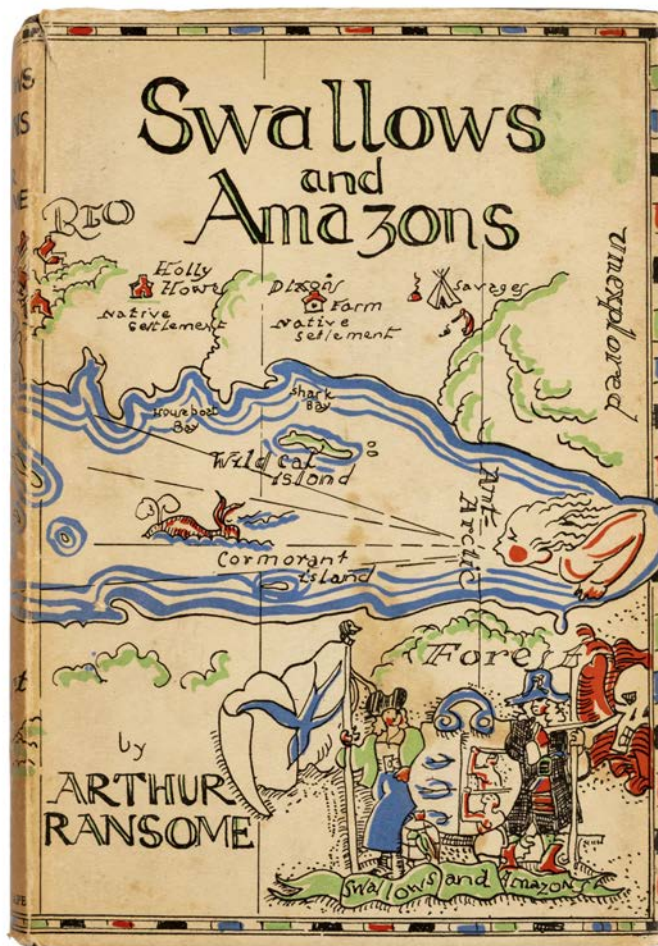 Swallows
and
Amazons
RIO
Holly
Howe
native
settlement
Dixon's
Farm
native
settlement
Savages
unexplored
Houseboat
Bay
Shark
Bay
Wild Cat
Island
Ant-
Arctic
Cormorant
Island
Forest
by
ARTHUR
RANSOME
Swallows and Amazons